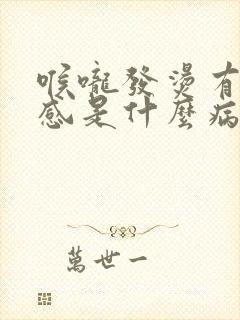 喉嚨發燙有
感是什麼病
萬世一